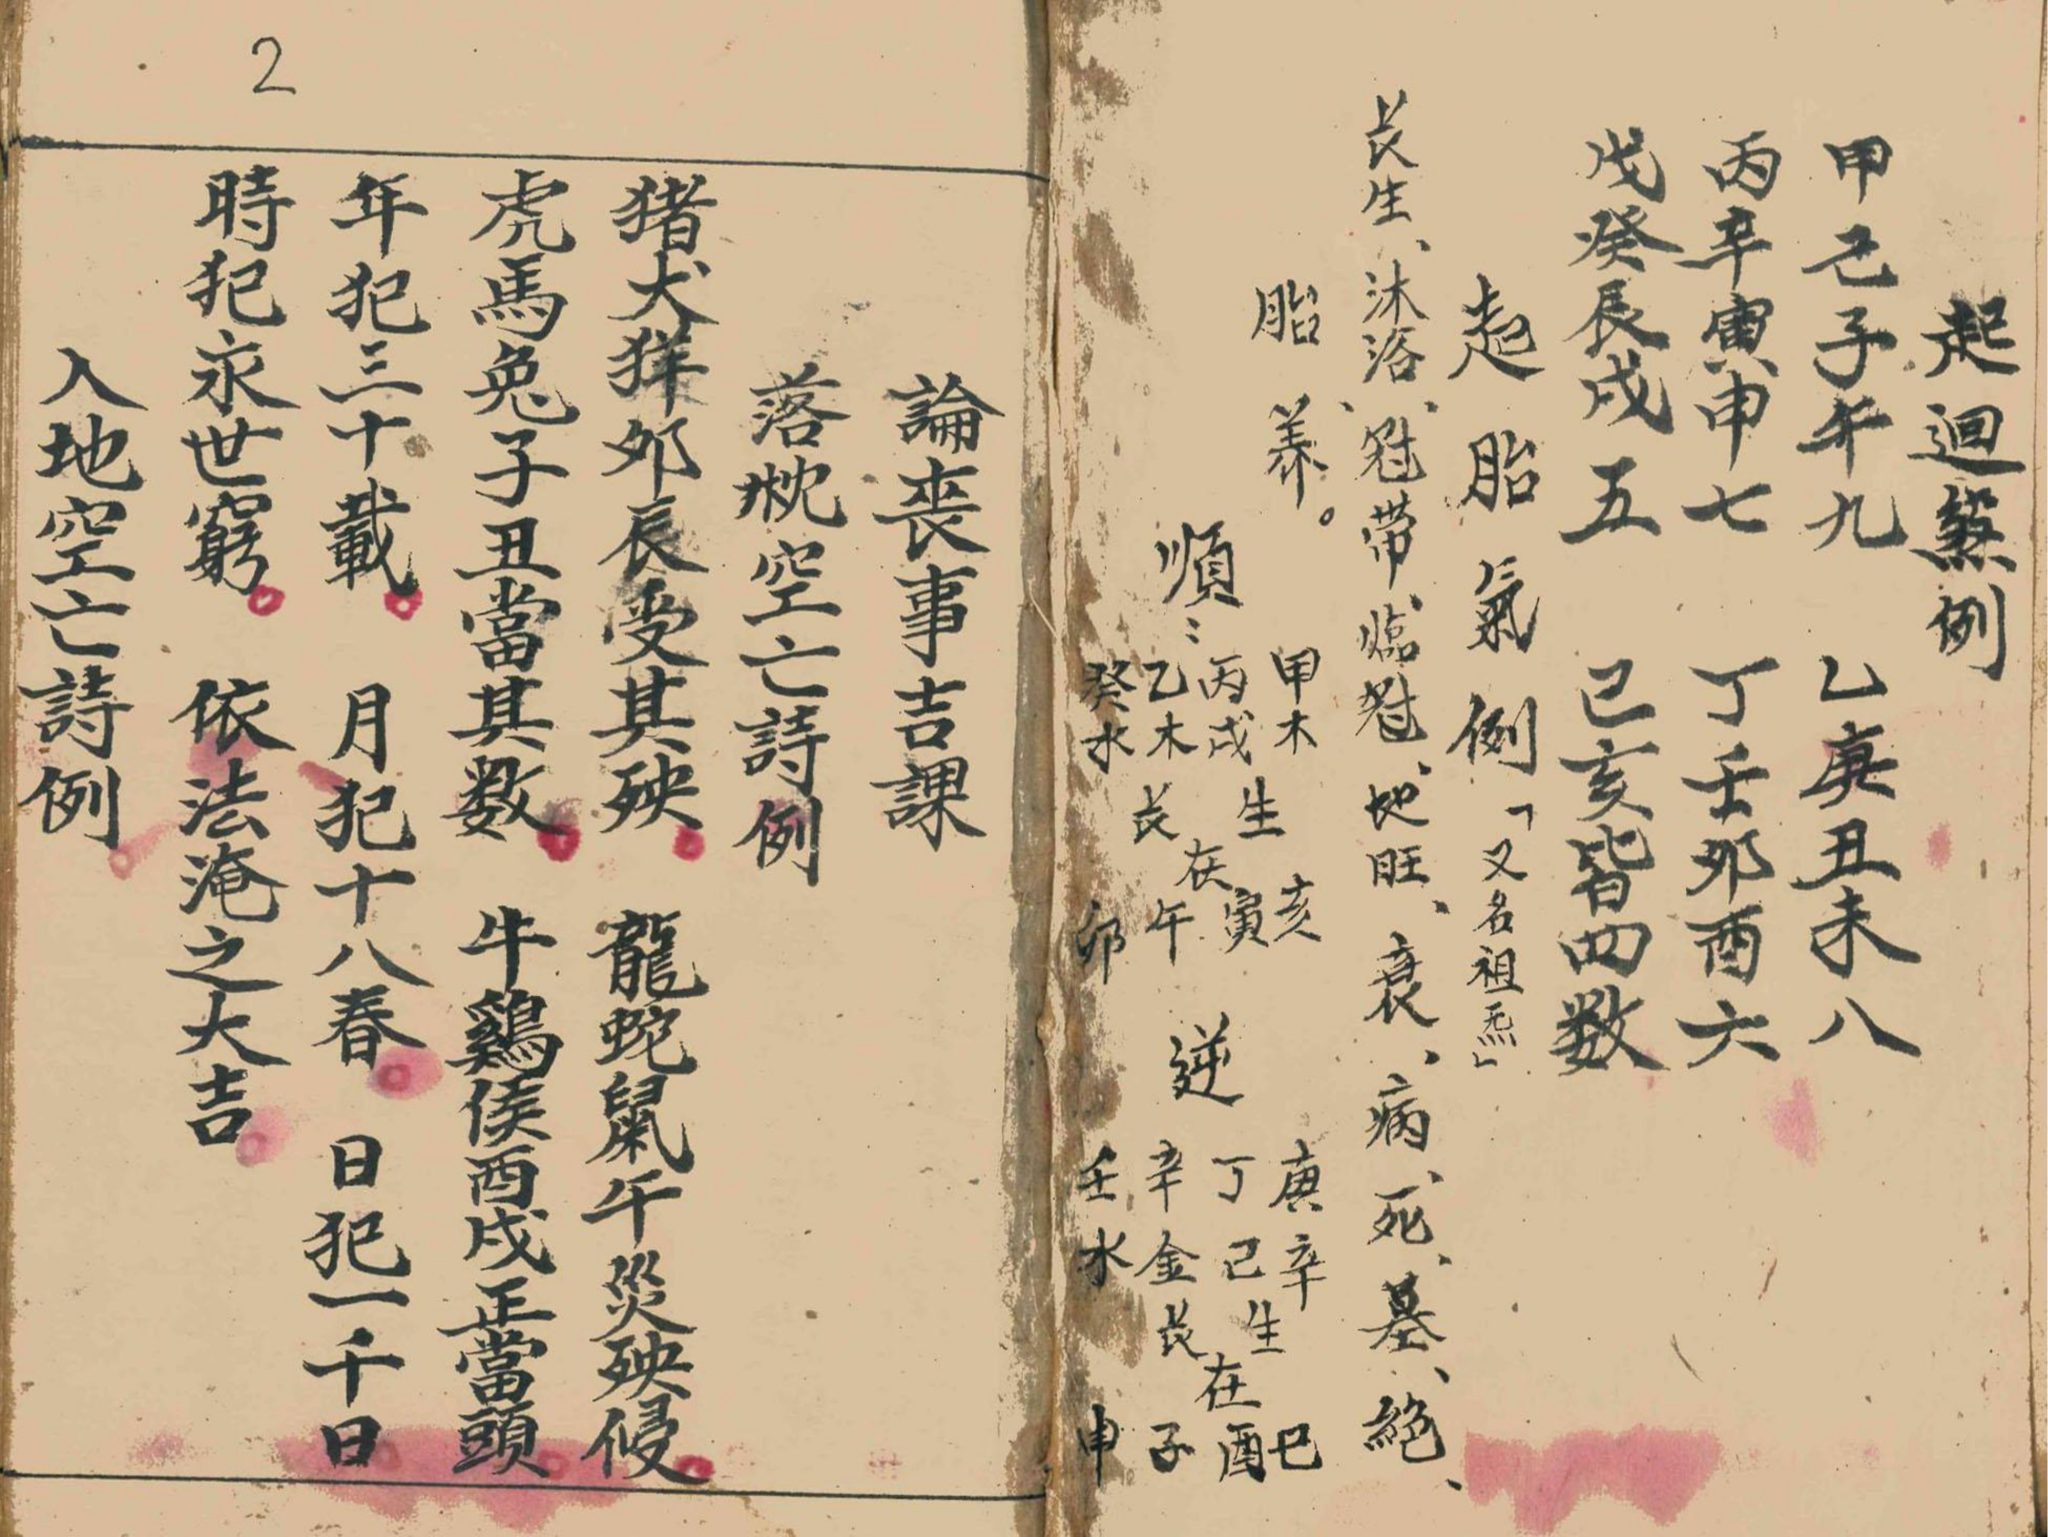 起迴煞例
甲己子午九 乙庚丑未八
丙辛寅申七 丁壬夘酉六
戊癸辰戌五 己亥皆四数
起胎氣例「又名祖炁」
長生、沐浴、冠带、臨冠、地旺、衰、病、死、墓、絕、
胎養。
順：
甲木
丙戊
乙木
癸水
長生在
亥
寅
午
卯
逆
庚辛
丁己
辛金
壬水
長生在
巳
酉
子
申
2
論喪事吉課
落枕空亡詩例
猪犬羊夘辰受其殃 龍蛇鼠午災殃侵
虎馬兔子丑當其数 牛鷄侯酉戌正當頭
年犯三十載 月犯十八春 日犯一千日
時犯永世窮 依法淹之大吉
入地空亡詩例